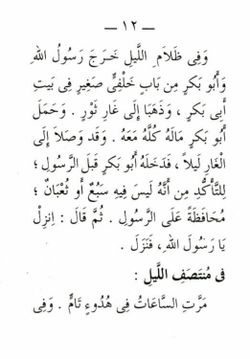 — ١٢ —
وَفِى ظَلَامِ اللَّيلِ خَـرَجَ رَسُولُ اللهِ
وَأَبُو بَكرٍ مِن بَابٍ خَلْفِىٍّ صَغِيرٍ فِى بَيتِ
أَبِى بَكرٍ ، وَذَهَبَا إِلَى غَارِ ثَوْرٍ . وَحَمَلَ
أَبُو بَكرٍ مَالَهُ كُلَّهُ مَعَهُ . وَقَد وَصَلَا إِلَى
الغَارِ لَيلاً ، فَدَخَلَهُ أَبُو بَكرٍ قَبلَ الرَّسُولِ ؛
لِلتَّأَكُّدِ مِن أَنَّهُ لَيسَ فِيهِ سَبُعٌ أَو ثُعْبَانٌ ؛
مُحَافَظَةً عَلَى الرَّسُولِ . ثُمَّ قَالَ : اِنزِلْ
يَا رَسُولَ اللهِ ، فَنَزَلَ .
فى مُنتَصَفِ اللَّيلِ :
مَرَّتِ السَّاعَاتُ فِى هُدُوءٍ تَامٍّ . وَفِى